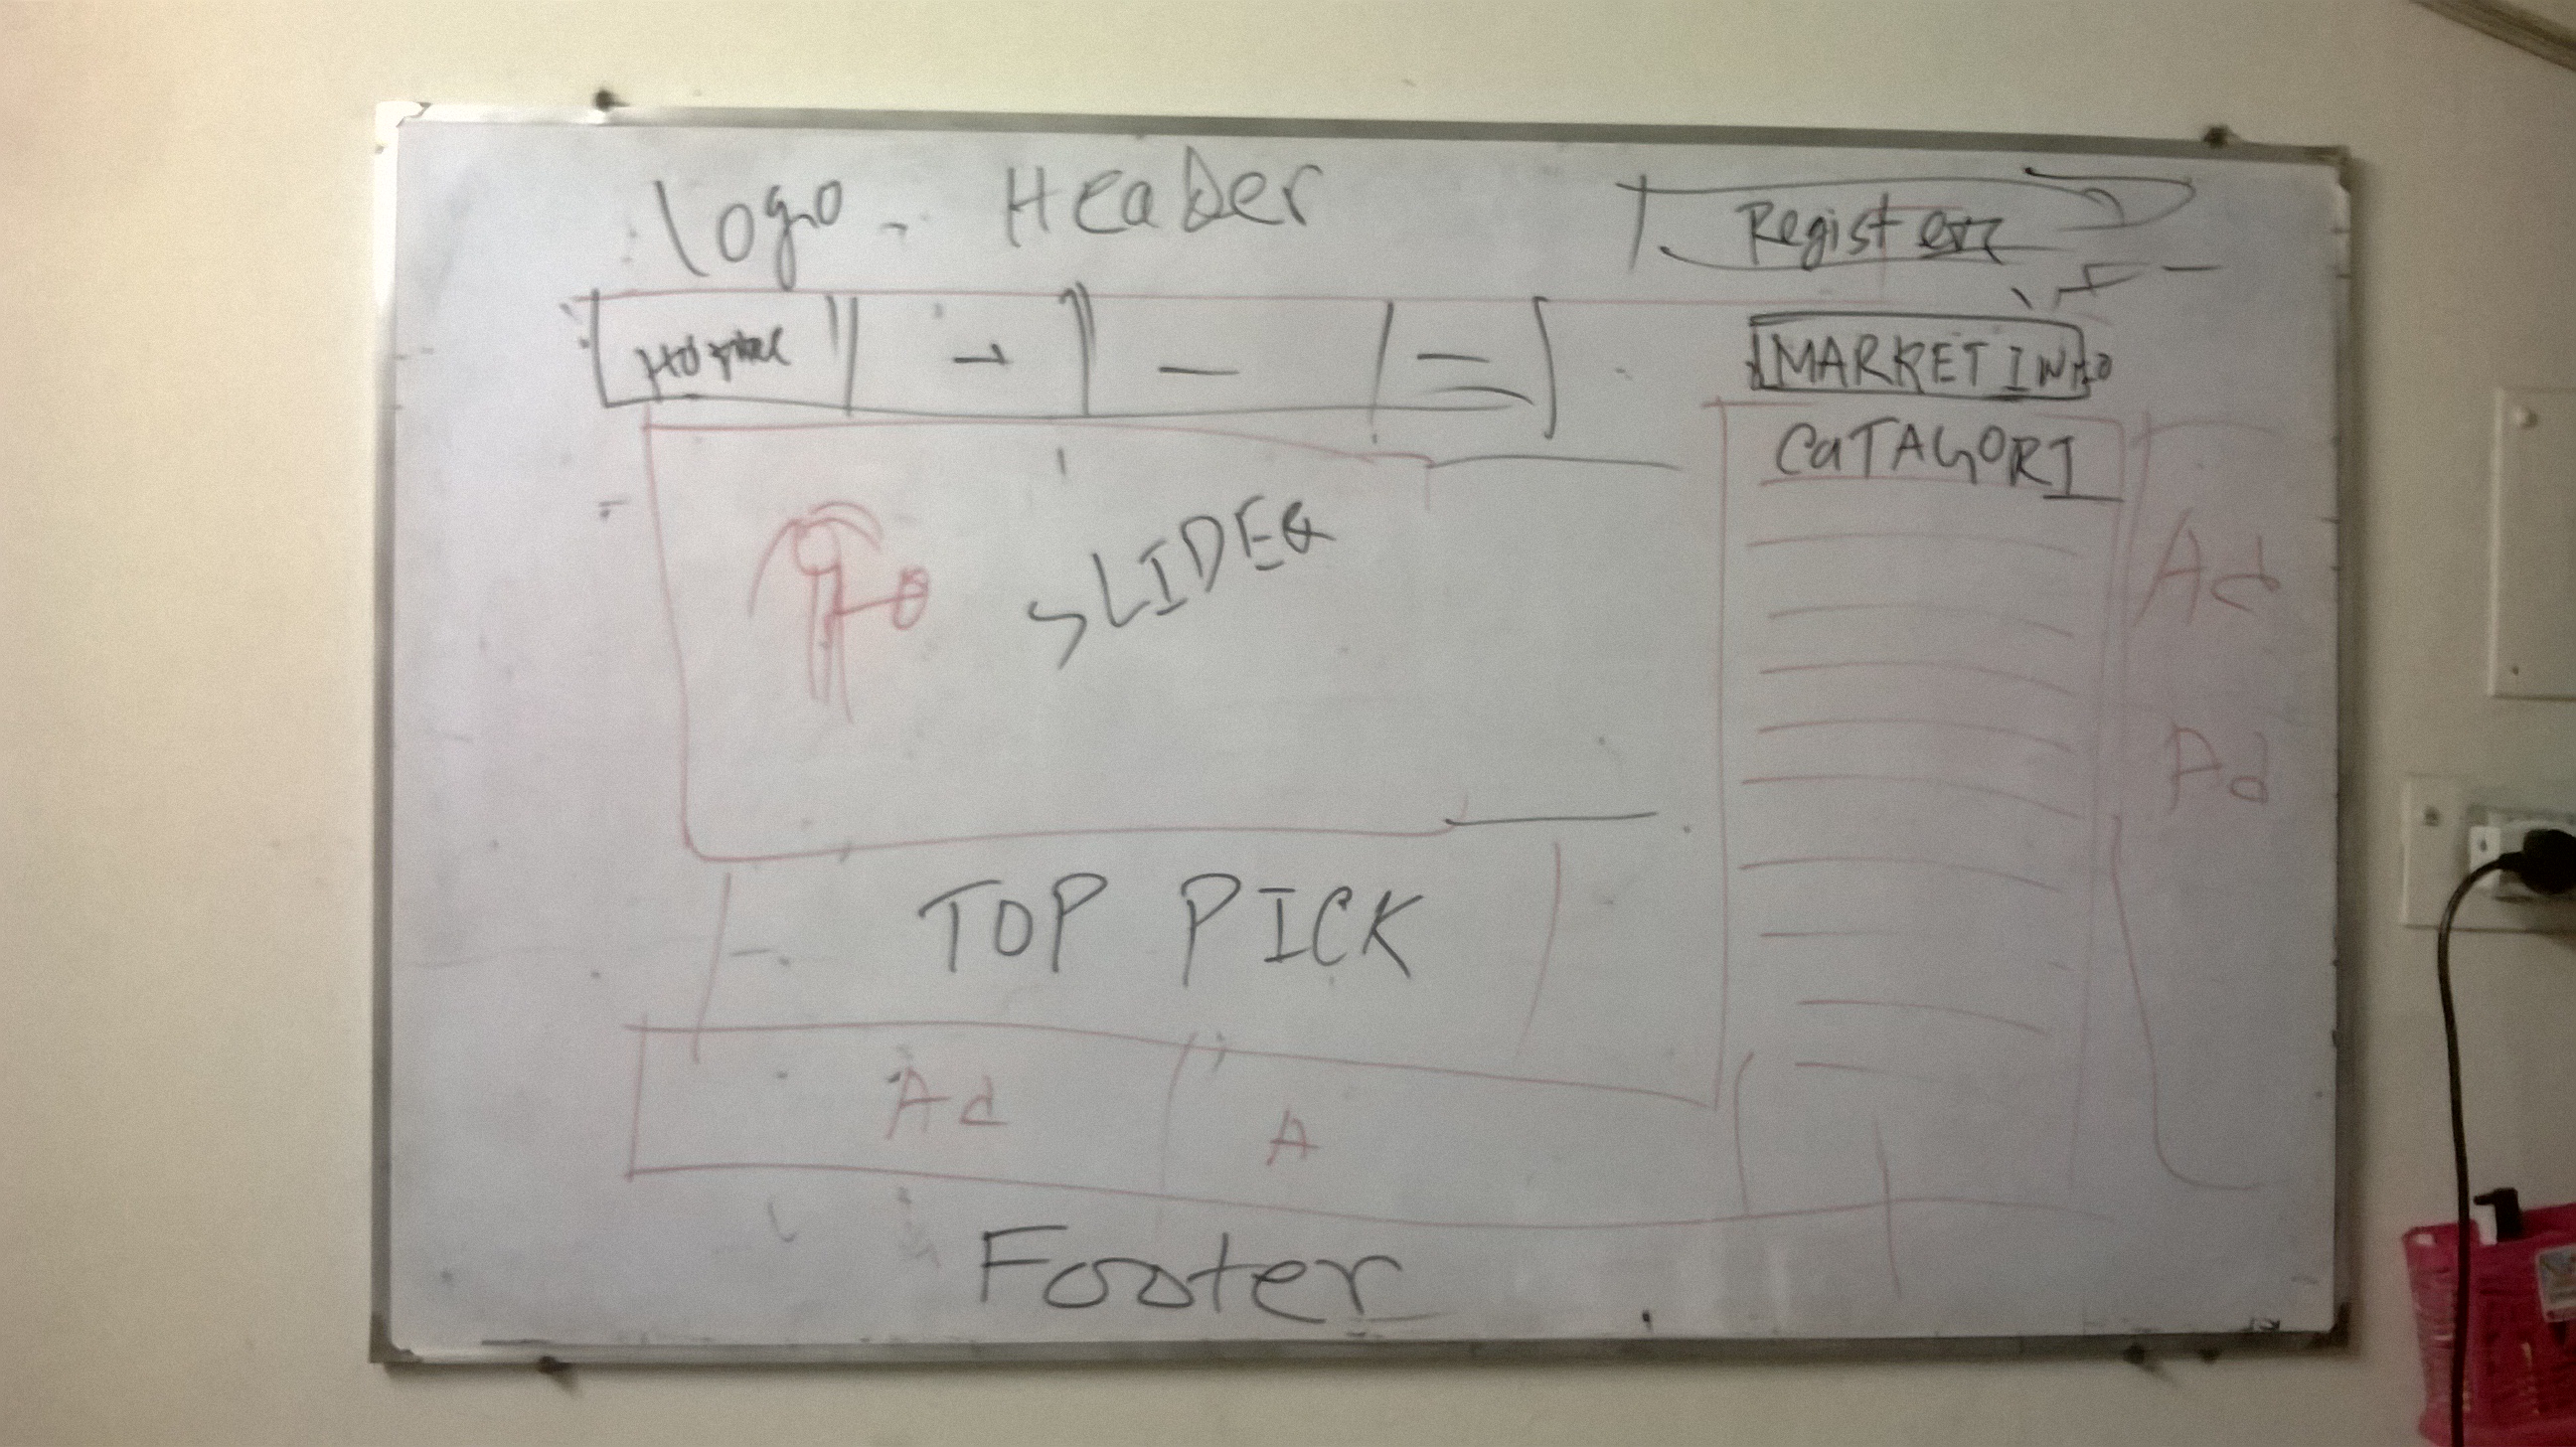 logo - Header
Register
Home
MARKET INFO
CATAGORI
SLIDER
Ad
Ad
TOP PICK
Ad
A
Footer